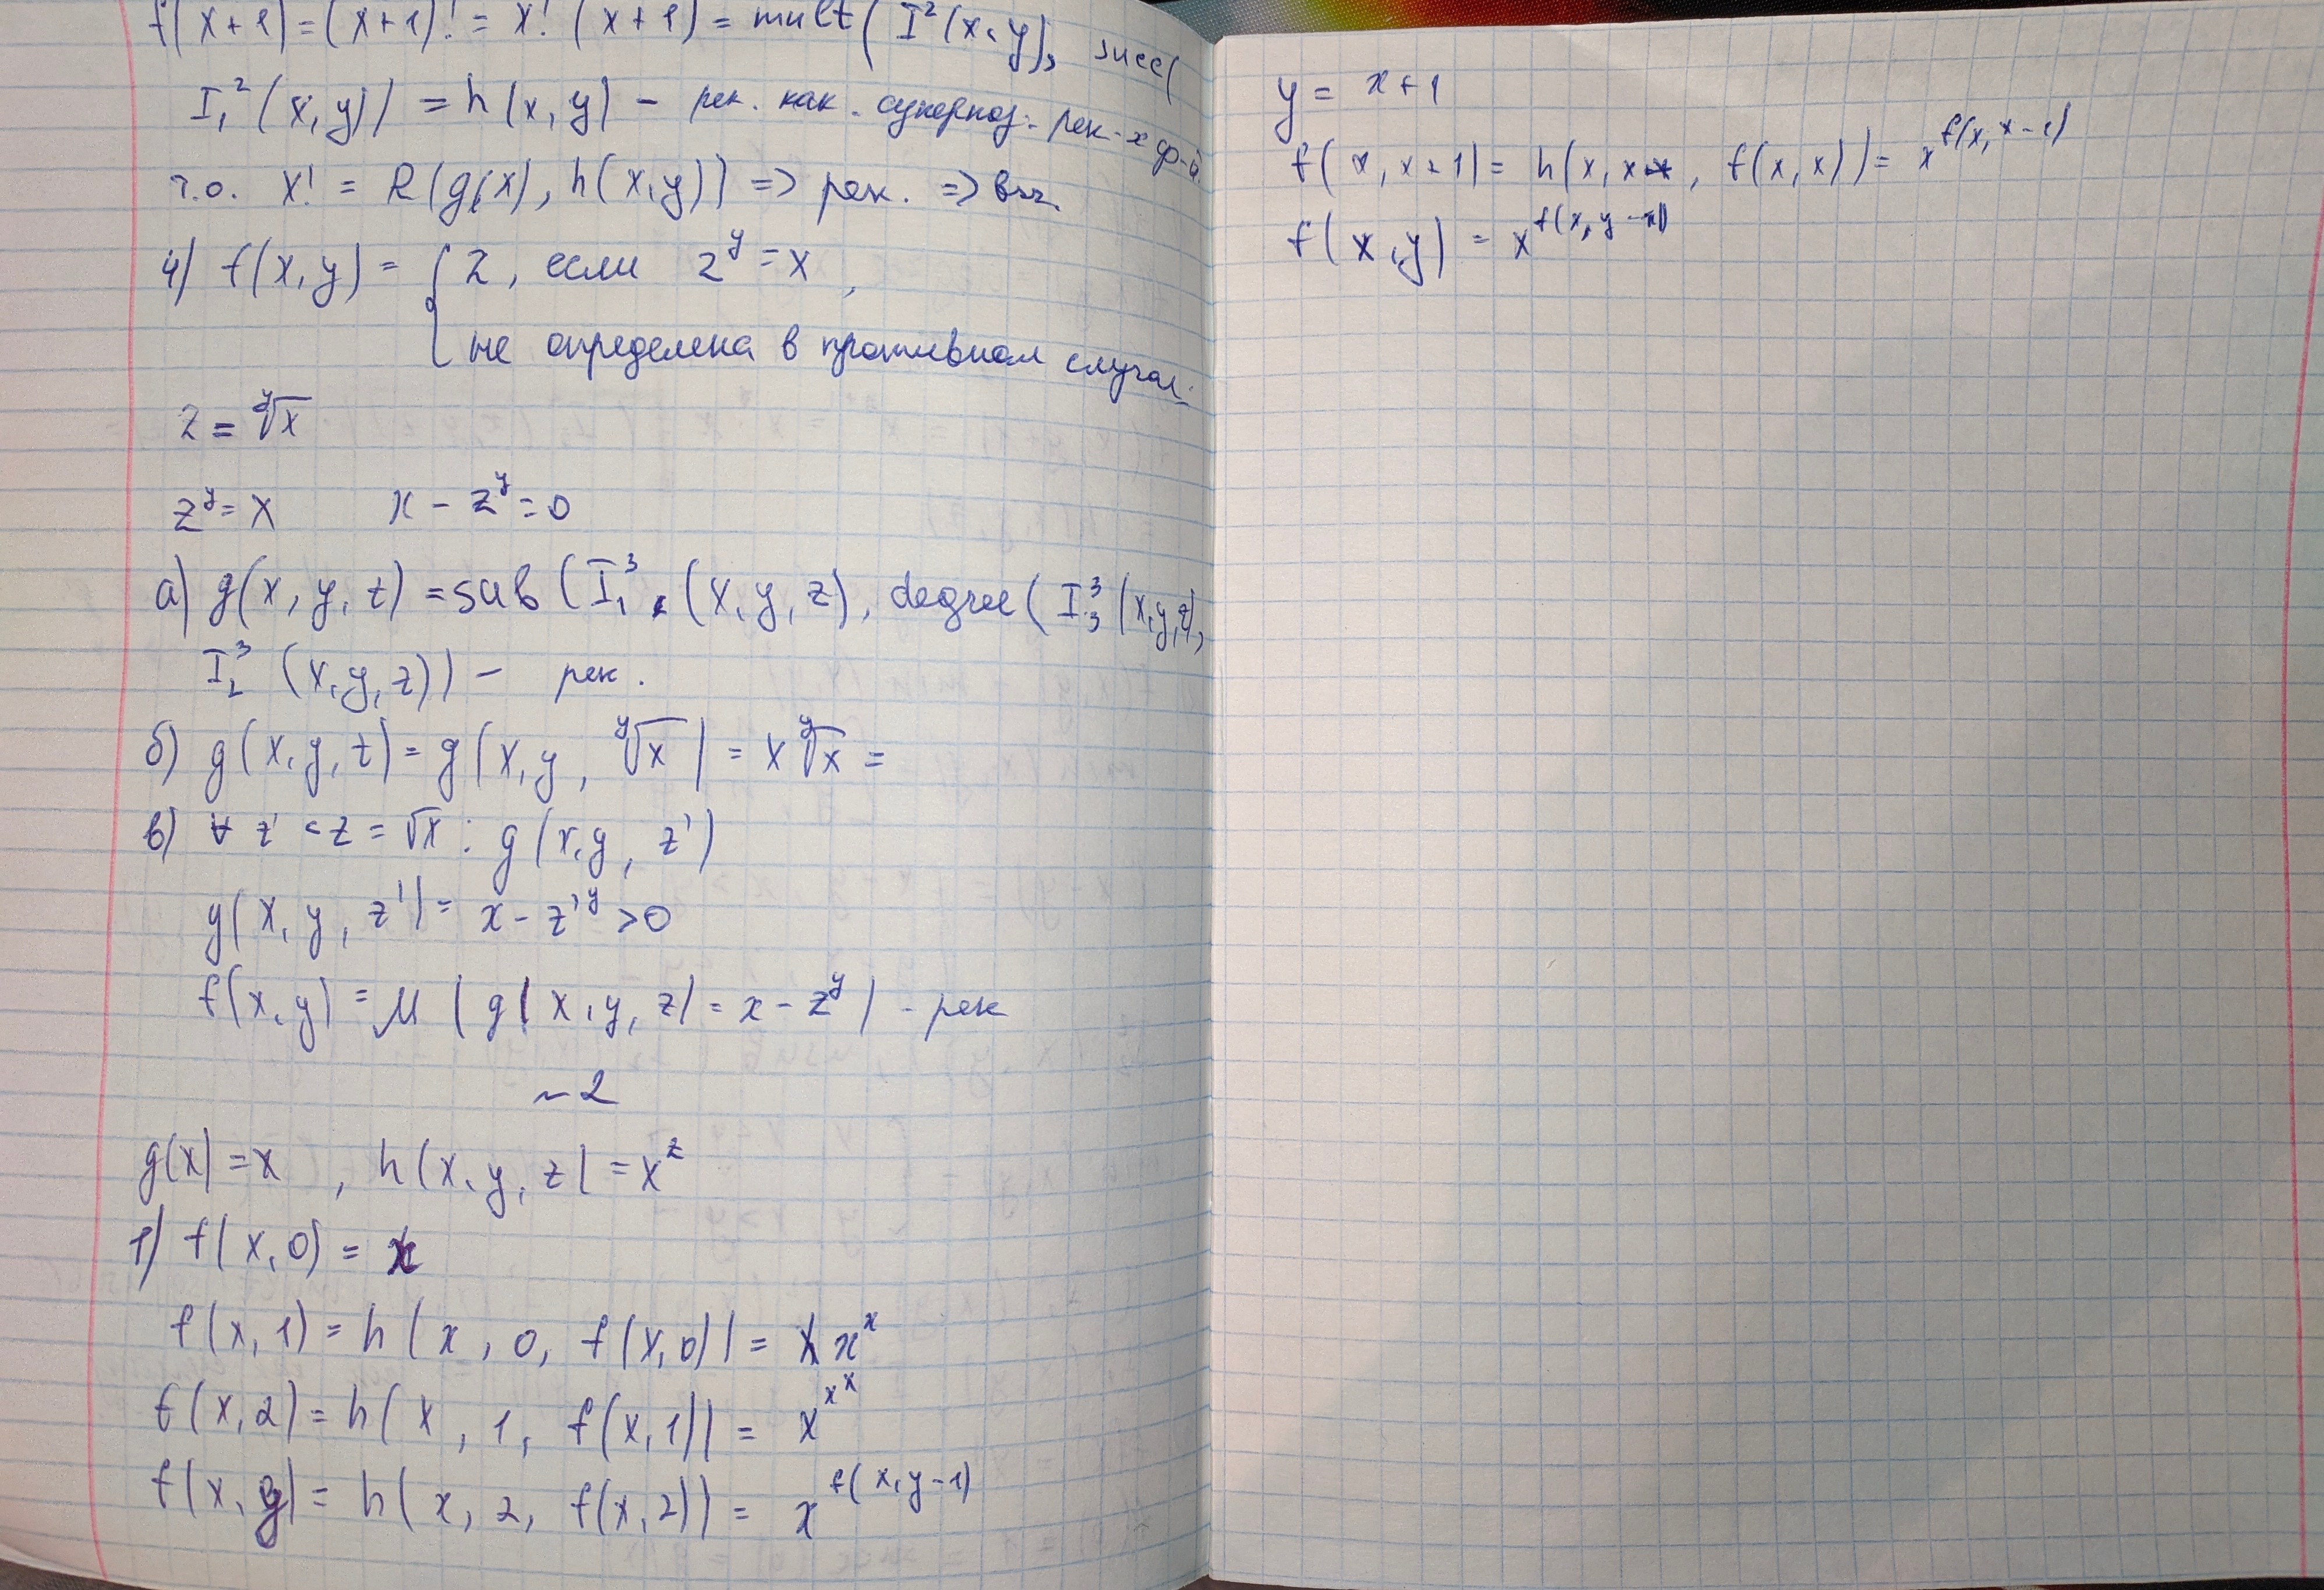 f(x+1)=(x+1)!=x!(x+1)=mult(I²(x,y), succ(
I₁²(x,y))=h(x,y) – рек. как. суперпоз. рек-х ф-й
т.о. x! = R(g(x), h(x,y)) => рек. => выч.
4) f(x,y) = { z, если z^y = x,
не определена в противном случае.
z = ʸ√x
z^y = x x – z^y = 0
а) g(x,y,z) = sub(I₁³(x,y,z), degree(I₃³(x,y,z),
I₂³(x,y,z)) – рек.
б) g(x,y,z) = g(x,y, ʸ√x) = x ʸ√x =
в) ∀ z' < z = √x : g(x,y, z')
g(x,y,z') = x – z'^y > 0
f(x,y) = μ(g(x,y,z) = x – z^y) – рек
~2
g(x)=x , h(x,y,z)=x^z
1) f(x,0) = x
f(x,1) = h(x, 0, f(x,0)) = x^x
f(x,2) = h(x, 1, f(x,1)) = x^x^x
f(x,y) = h(x, 2, f(x,2)) = x^f(x,y-1)
y = x+1
f(x, x+1) = h(x, x, f(x,x)) = x^f(x, x-1)
f(x,y) = x^f(x, y-x)